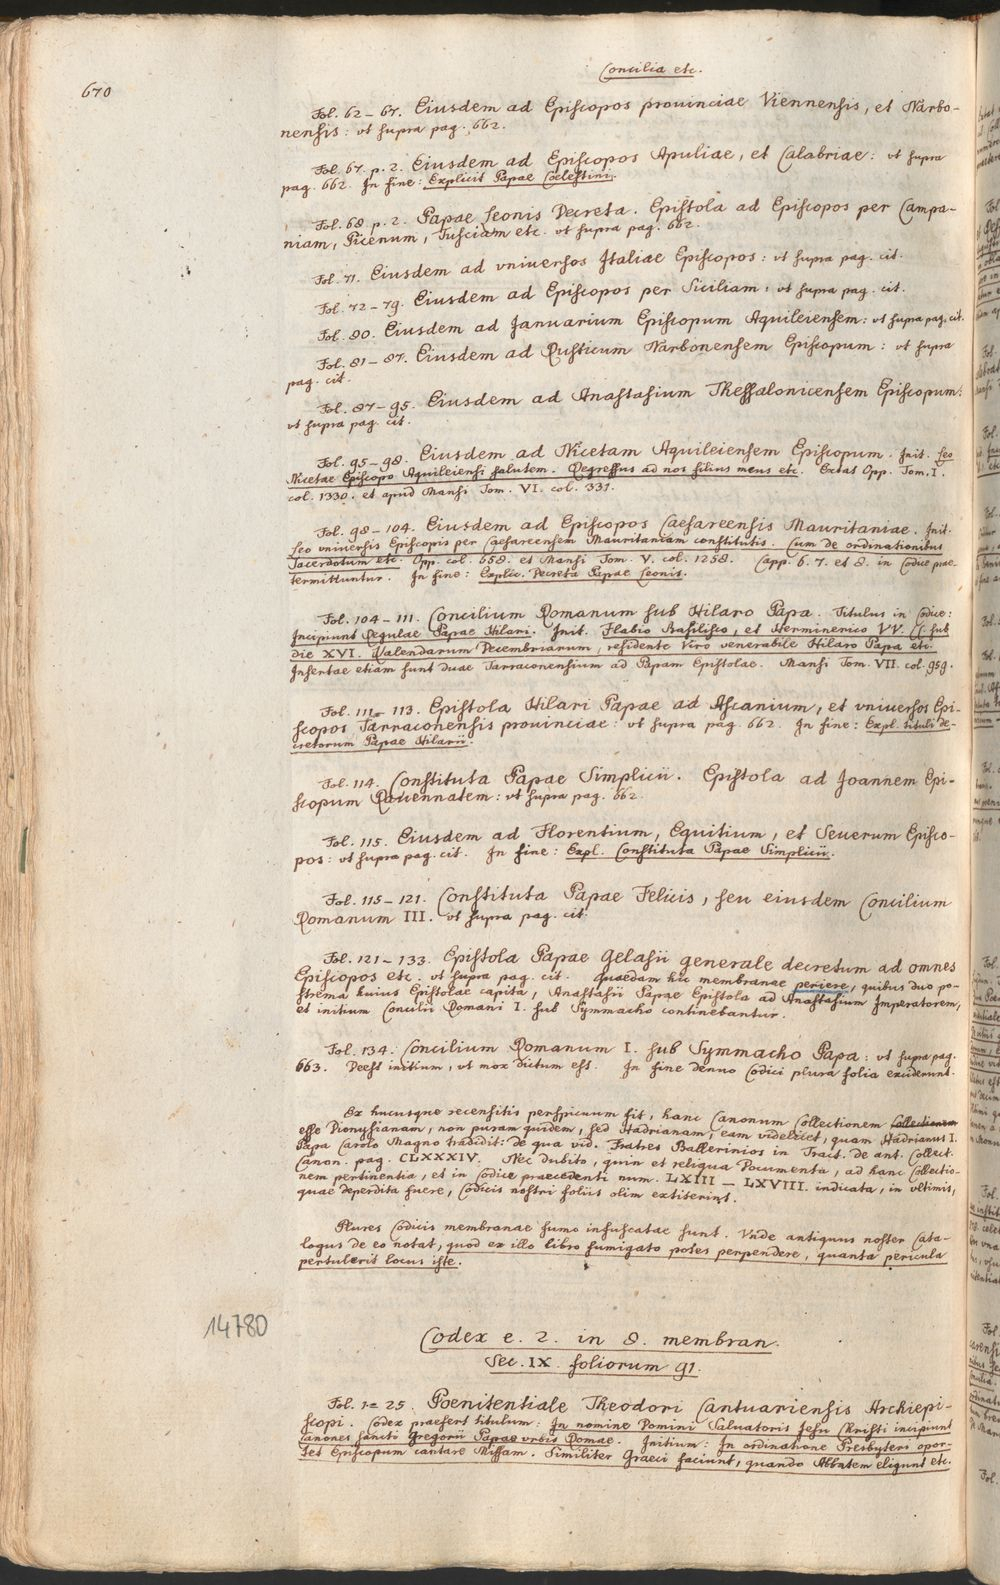 670
Concilia etc.
Fol. 62 – 67. Eiusdem ad Episcopos prouinciae Viennensis, et Narbo-
nensis: vt supra pag. 662.
Fol. 67. p. 2. Eiusdem ad Episcopos Apuliae, et Calabriae: vt supra
pag. 662. In fine: Explicit Papae Coelestini.
Fol. 68. p. 2. Papae Leonis Decreta. Epistola ad Episcopos per Campa-
niam, Picenum, Tusciam etc. vt supra pag. 662.
Fol. 71. Eiusdem ad vniuersos Italiae Episcopos: vt supra pag. cit.
Fol. 72 – 79. Eiusdem ad Episcopos per Siciliam: vt supra pag. cit.
Fol. 80. Eiusdem ad Januarium Episcopum Aquileiensem: vt supra pag. cit.
Fol. 81 – 87. Eiusdem ad Rusticum Narbonensem Episcopum: vt supra
pag. cit.
Fol. 87 – 95. Eiusdem ad Anastasium Thessalonicensem Episcopum:
vt supra pag. cit.
Fol. 95 – 98. Eiusdem ad Nicetam Aquileiensem Episcopum. Init. Leo
Nicetae Episcopo Aquileiensi salutem. Regressus ad nos filius meus etc. Extat Opp. Tom. I.
col. 1330. et apud Mansi Tom. VI. col. 331.
Fol. 98 – 104. Eiusdem ad Episcopos Caesareensis Mauritaniae. Init.
Leo vniuersis Episcopis per Caesareensem Mauritaniam constitutis. Cum de ordinationibus
Sacerdotum etc. Opp. col. 658. et Mansi Tom. V. col. 1258. Capp. 6. 7. et 8. in Codice prae-
termittuntur. In fine: Explic. Decreta Papae Leonis.
Fol. 104 – 111. Concilium Romanum sub Hilaro Papa. Titulus in Codice:
Incipiunt Regulae Papae Hilari. Init. Flabio Basilisco, et Herminerico VV. CC. sub
die XVI. Kalendarum Decembriarum, residente Viro venerabile Hilaro Papa etc.
Insertae etiam sunt duae Tarraconensium ad Papam Epistolae. Mansi Tom. VII. col. 959.
Fol. 111 – 113. Epistola Hilari Papae ad Ascanium, et vniuersos Epi-
scopos Tarraconensis prouinciae: vt supra pag. 662. In fine: Expl. tituli de-
cretorum Papae Hilarii.
Fol. 114. Constituta Papae Simplicii. Epistola ad Joannem Epi-
scopum Rauennatem: vt supra pag. 662.
Fol. 115. Eiusdem ad Florentium, Equitium, et Seuerum Episco-
pos: vt supra pag. cit. In fine: Expl. Constituta Papae Simplicii.
Fol. 115 – 121. Constituta Papae Felicis, seu eiusdem Concilium
Romanum III. vt supra pag. cit.
Fol. 121 – 133. Epistola Papae Gelasii generale decretum ad omnes
Episcopos etc. vt supra pag. cit. Quaedam hic membranae periere, quibus duo po-
strema huius Epistolae capita, Anastasii Papae Epistola ad Anastasium Imperatorem,
et initium Concilii Romani I. sub Symmacho continebantur.
Fol. 134. Concilium Romanum I. sub Symmacho Papa: vt supra pag.
663. Deest initium, vt mox dictum est. In fine denuo Codici plura folia exciderunt.
Ex hucusque recensitis perspicuum fit, hanc Canonum Collectionem Collectionem
esse Dionysianam, non puram quidem, sed Hadrianam, eam videlicet, quam Hadrianus I.
Papa Carolo Magno tradidit: de qua vid. Fratres Ballerinios in Tract. de ant. Collect.
Canon. pag. CLXXXIV. Nec dubito, quin et reliqua Documenta, ad hanc Collectio-
nem pertinentia, et in Codice praecedenti num. LXIII – LXVIII. indicata, in vltimis,
quae deperdita fuere, Codicis nostri foliis olim extiterint.
Plures Codicis membranae fumo infuscatae sunt. Vnde antiquus noster Cata-
logus de eo notat, quod ex illo libro fumigato potes perpendere, quanta pericula
pertulerit locus iste.
14780
Codex e. 2. in 8. membran.
Sec. IX. foliorum 91.
Fol. 1 – 25. Poenitentiale Theodori Cantuariensis Archiepi-
scopi. Codex praefert titulum: In nomine Domini Saluatoris Jesu Christi incipiunt
Canones sancti Gregorii Papae vrbis Romae. Initium: In ordinatione Presbyteri opor-
tet Episcopum cantare Missam. Similiter Graeci faciunt, quando Abbatem eligunt etc.